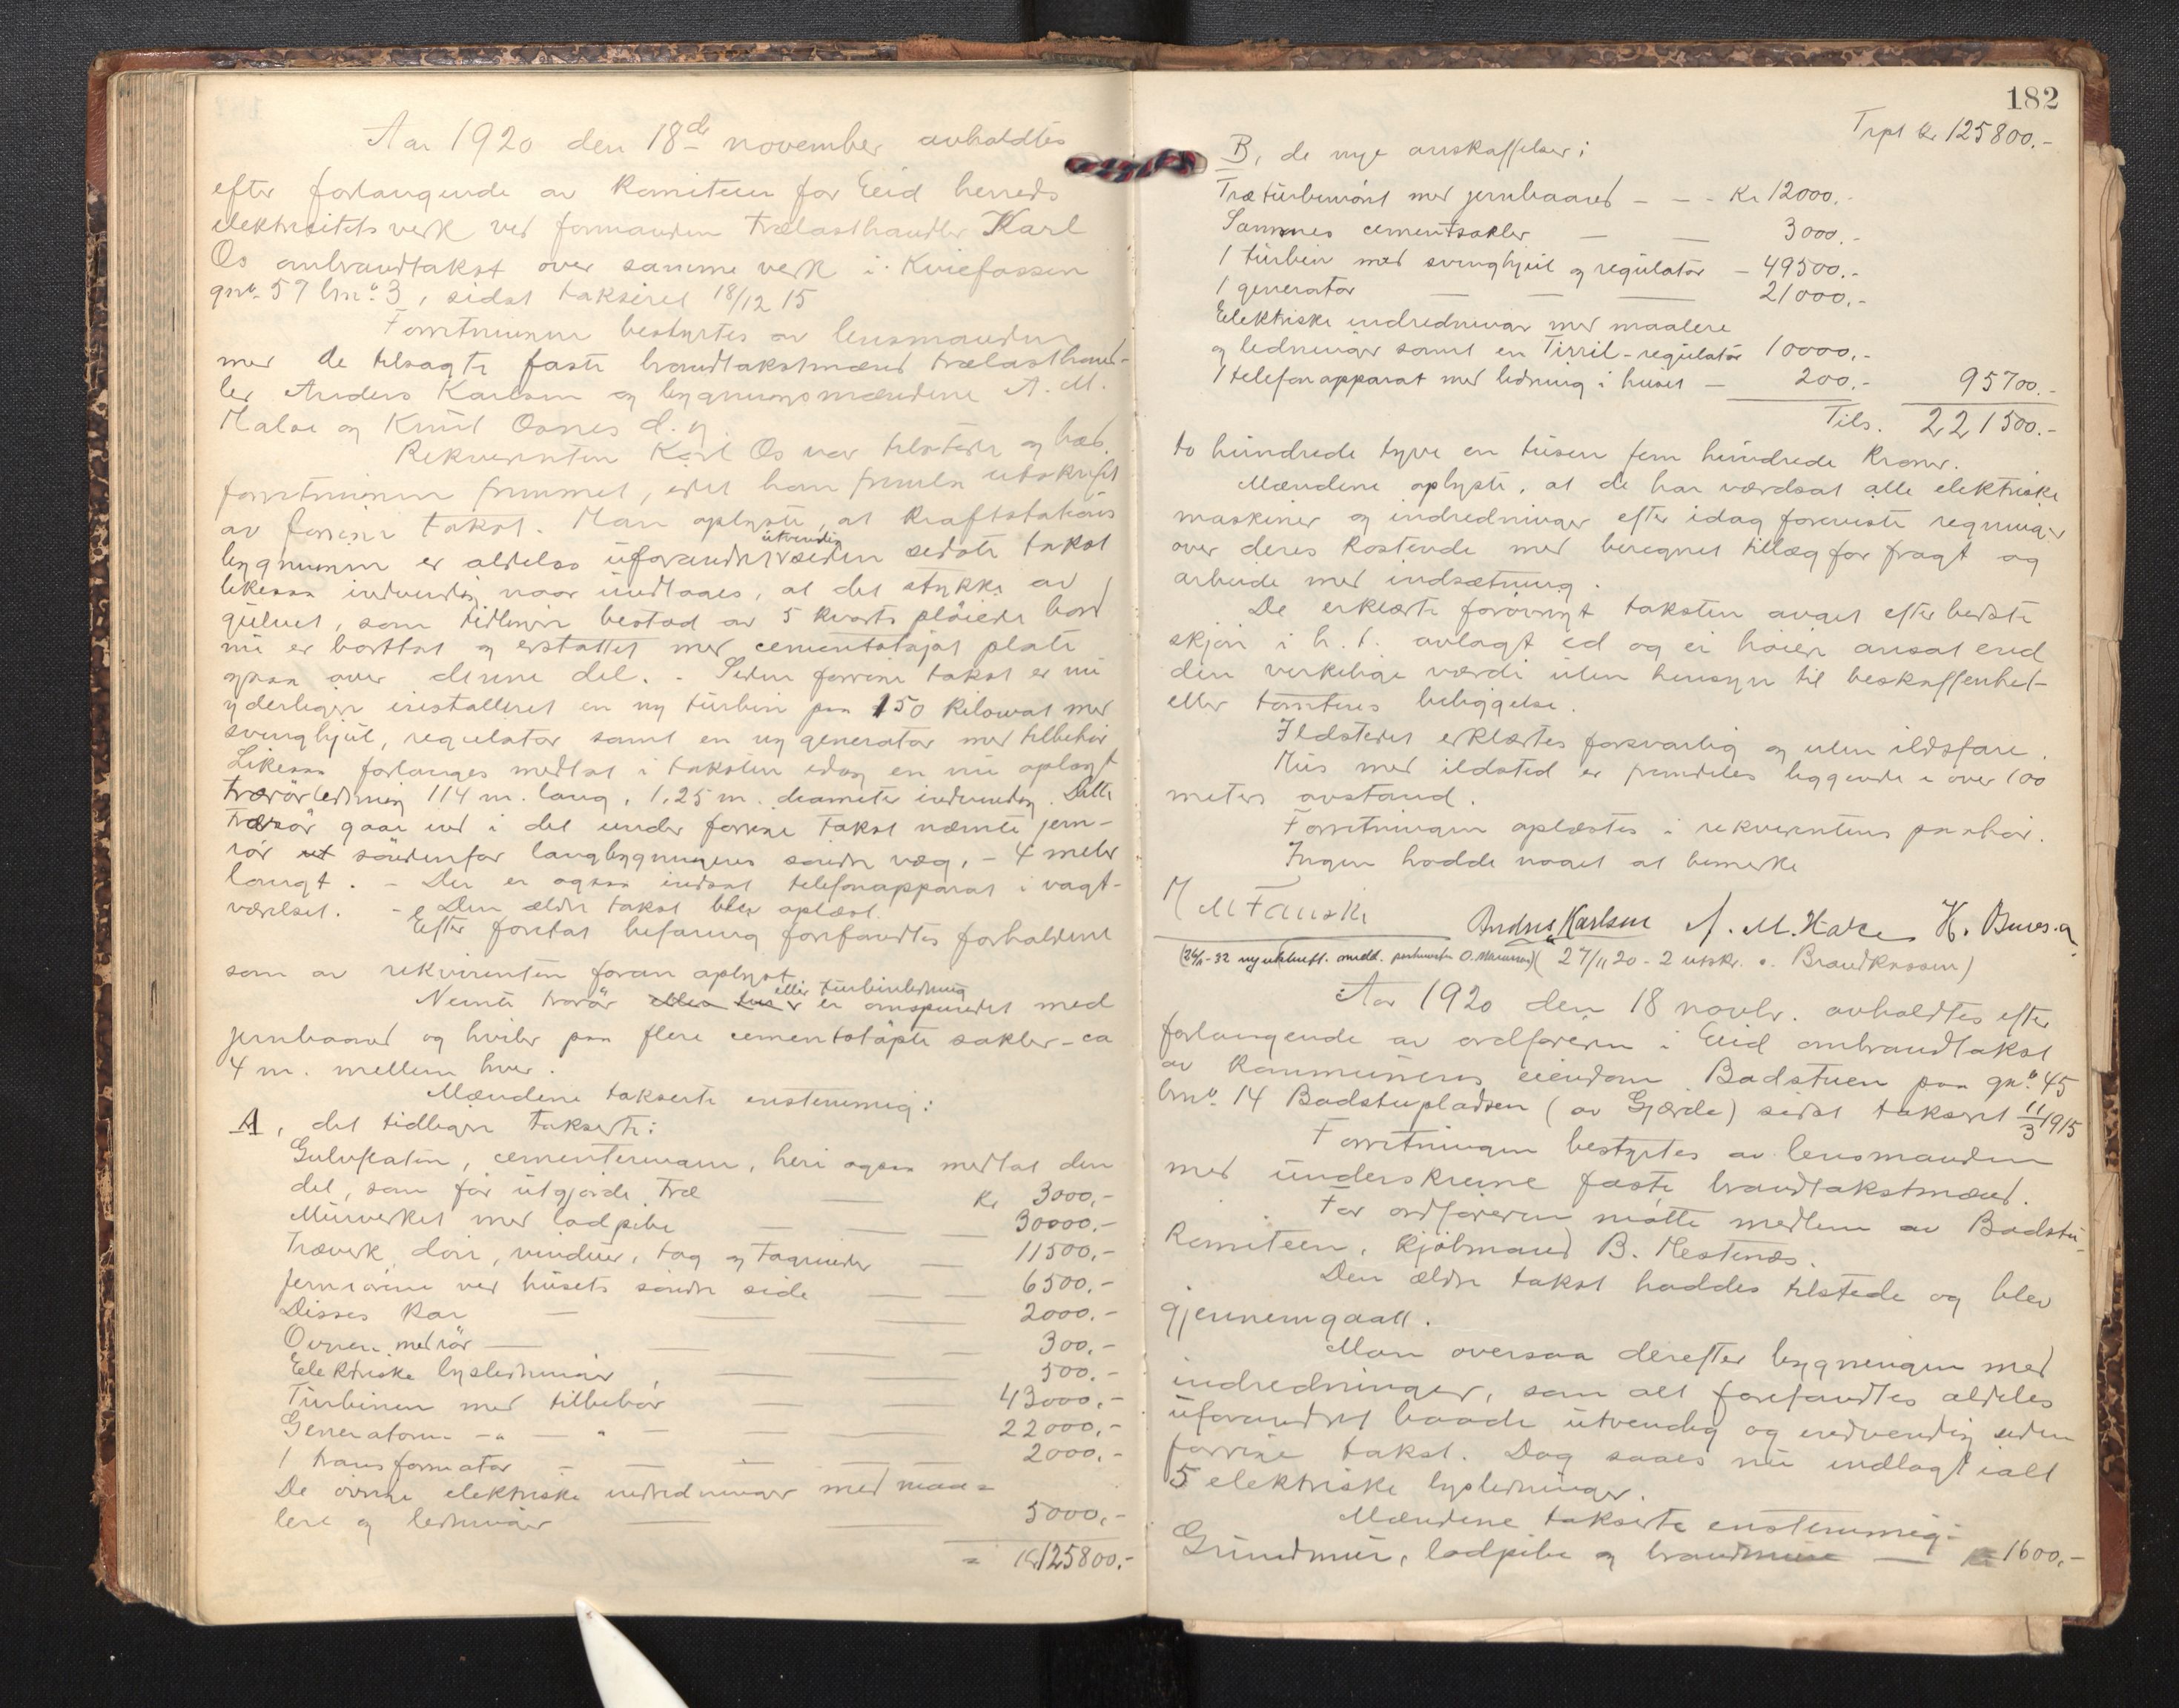 Aar 1920 den 18de november avholdtes
efter forlangende av Komiteen for Eid herreds
elektrisitetsverk ved formanden trælasthandler Karl
Os ombrandtakst over samme verk i Kviefossen
gno. 57 bno. 3, sidst takseret 18/12 15
Forretningen bestyrtes av lensmanden
med de tilsagte faste brandtakstmænd trælasthand-
ler Anders Karlsen og bygningsmændene A. M.
Hakse og Knut Osnes d. y.
Rekvirenten Karl Os var tilstede og bad
forretningen fremmet, idet han fremla utskrift
av forrige takst. Man oplyste, at kraftstations
bygningen er aldeles uforandret utvendig siden sidste takst
likesaa indvendig naar undtages, at det stykke av
gulvet, som tidligere bestod av 5 kvarts pløiede bord
nu er borttat og erstattet med cementstøpt plate
ogsaa over denne del. - Siden forrige takst er nu
yderligere installeret en ny turbin paa 150 kilowat med
svinghjul, regulator samt en ny generator med tilbehør
Likesaa forlanges medtat i taksten idag en nu oplagt
trærørledning 114 m. lang, 1,25 m. diameter indvendig. Dette
trærør gaar ind i det under forrige takst nævnte jern-
rør søndenfor langbygningens søndre væg, - 4 meter
langt. - Der er ogsaa indsat telefonapparat i vagt-
værelset. - Den ældre takst blev oplæst.
Efter foretat befaring forefandtes forholdene
som av rekvirenten foran oplyst.
Nevnte trærør eller turbinledning er omspundet med
jernbaand og hviler paa flere cementstøpte sokler - ca
4 m. mellem hver.
Mændene takserte enstemmig:
A, det tidligere takserte:
Gulvflaten, cementeringen, heri ogsaa medtat den
del, som før utgjorde træ — Kr 3000,-
Murverket med ladpibe — — 30000,-
Træverk, dører, vinduer, tag og tagrender — 11500,-
Jernrørene ved husets søndre side — — 6500,-
Disses kar — — — 2000,-
Ovnen med rør — — — 300,-
Elektriske lysledninger, — — 500,-
Turbinen med tilbehør — — 43000,-
Generatoren -"- — " — — 22000,-
1 transformator — — — — 2000,-
De øvrige elektriske indredninger med maa-
lere og ledninger — — 5000,-
= Kr 125800,-
182
Trpt kr 125800.-
B, de nye anskaffelser:
Træturbinrøret med jernbaand - - - Kr 12000,-
Sammes cementsokler — — 3000,-
1 turbin med svinghjul og regulator — 49500.-
1 generator — — — 21000,-
Elektriske indredninger med maalere
og ledninger samt en Tirril-regulator 10000,-
1 telefonapparat med ledning i huset — 200,- 95700.-
Tils. 221500.-
to hundrede tyve en tusen fem hundrede Kroner.
Mændene oplyste, at de har værdsat alle elektriske
maskiner og indredninger efter idag foreviste regninger
over deres kostende med beregnet tillæg for fragt og
arbeide med indsætning.
De erklærte forøvrigt taksten avgit efter bedste
skjøn i h. t. avlagt ed og ei høiere ansat end
den virkelige værdi uten hensyn til beskaffenhet
eller tomtens beliggelse.
Ildstedet erklærtes forsvarlig og uten ildsfare.
Hus med ildsted er fremdeles liggende i over 100
meters avstand.
Forretningen oplæstes i rekvirentens paahør.
Ingen hadde noget at bemerke
M Fauske
Anders Karlsen A. M. Hakse K. Osnes d. y.
(27/11 20 - 2 utskr. t. Brandkassen)
Aar 1920 den 18 novbr. avholdtes efter
forlangende av ordføreren i Eid ombrandtakst
av Kommunens eiendom Badstuen paa gno. 45
bno. 14 Badstupladsen (av Gjerde) sidst takseret 11/3 1915
Forretningen bestyrtes av lensmanden
med underskrevne faste brandtakstmænd.
For ordføreren møtte medlem av Badstu-
Komiteen, Kjøbmand B. Hestenes.
Den ældre takst haddes tilstede og blev
gjennemgaatt.
Man oversaa derefter bygningen med
indredninger, som alt forefandtes aldeles
uforandret baade utvendig og indvendig siden
forrige takst. Dog saaes nu indlagt ialt
5 elektriske lysledninger.
Mændene takserte enstemmig:
Grundmur, ladpibe og brandmure — Kr 1600,-